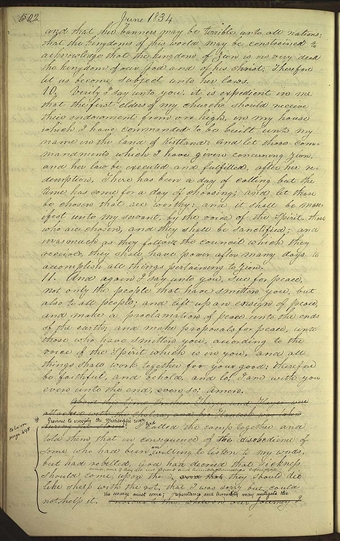 502 June 1834
and that her banners may be terrible unto all nations;
that the kingdoms of this world may be constrained to
acknowledge that the kingdom of Zion is in very deed
the kingdom of our God and of his Christ; Therefore
let us become subject unto her laws.
10. Verily I say unto you, it is expedient in me
that the first elders of my church should receive
their endowment from on high, in my house
which I have commanded to be built unto my
name in the land of Kirtland: and let those com-
mandments which I have given concerning Zion,
and her law be executed and fulfilled, after her re-
demption. There has been a day of calling, but the
time has come for a day of choosing; and let those
be chosen that are worthy: and it shall be man-
ifest unto my servant, by the voice of the Spirit, those
who are chosen, and they shall be sanctified; and
inasmuch as they follow the council which they
receive, they shall have power after many days to
accomplish all things pertaining to Zion.
11. And again I say unto you, sue for peace,
not only the people that have smitten you, but
also to all people; and lift up an ensign of peace,
and make a proclamation of peace unto the ends
of the earth; and make proposals for peace, unto
those who have smitten you, according to the
voice of the Spirit which is in you, and all
things shall work together for your good: therefore
be faithful, and behold, and lo, I am with you
even unto the end, even so: Amen.
called the camp together and
told them that in consequence of the disobedience of
some who had been unwilling to listen to my words,
but had rebelled, God had decreed that sickness
should come upon the and they should die
like sheep with the rot; that I was sorry but could
not help it.